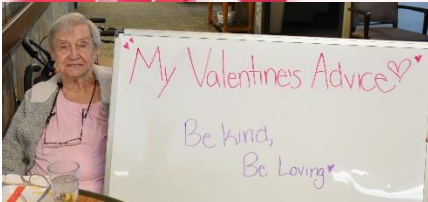 My Valentines Advice
Be kind,
Be Loving